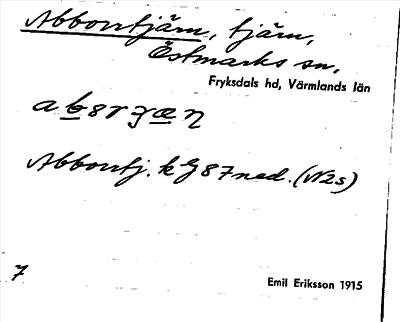 Abborrtjärn, tjärn,
Östmarks sn,
Fryksdals hd, Värmlands län
Abborrtj. k G 87 ned. (N2s)
7
Emil Eriksson 1915